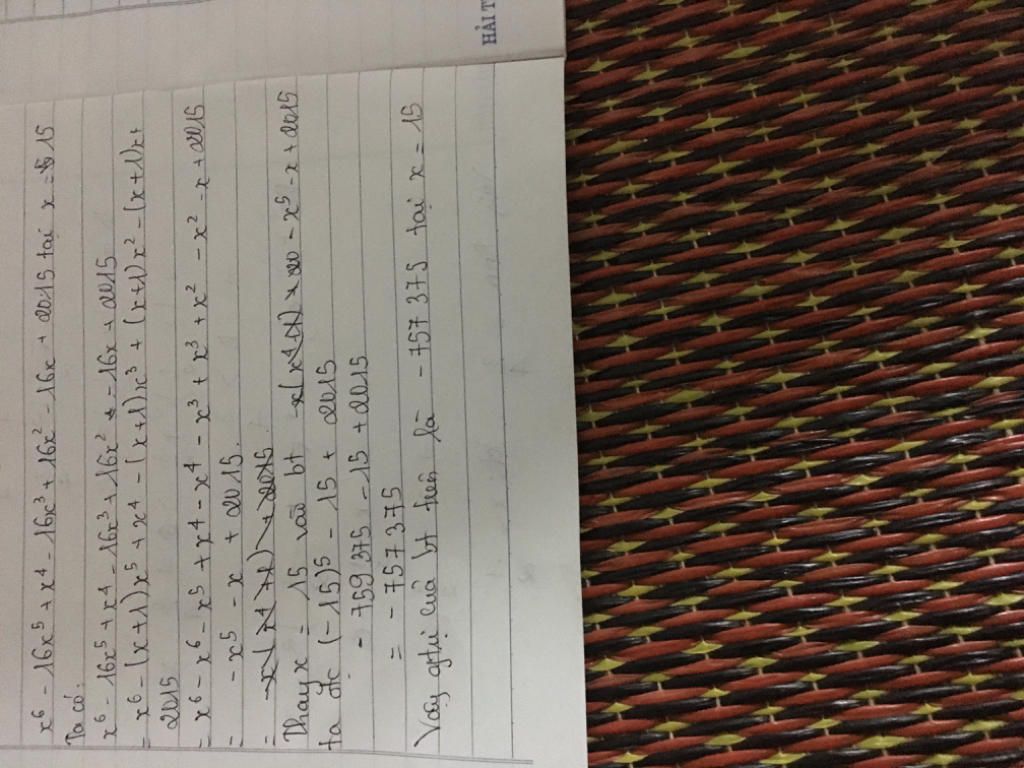 HẢI T
x⁶ - 16x⁵ + x⁴ - 16x³ + 16x² - 16x + 2015 tại x = 15
Ta có:
x⁶ - 16x⁵ + x⁴ - 16x³ + 16x² - 16x + 2015
= x⁶ - (x+1)x⁵ + x⁴ - (x+1)x³ + (x+1)x² - (x+1)x +
2015
= x⁶ - x⁶ - x⁵ + x⁴ - x⁴ - x³ + x³ + x² - x² - x + 2015
= - x⁵ - x + 2015.
=
Thay x = 15 vào bt - x⁵ - x + 2015
ta đc (-15)⁵ - 15 + 2015
- 759375 - 15 + 2015
= - 757375
Vậy gtrị của bt trên là - 757375 tại x = 15